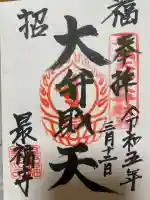 奉拝
令和五年
二月十二日
招 福
大弁財天
最福寺